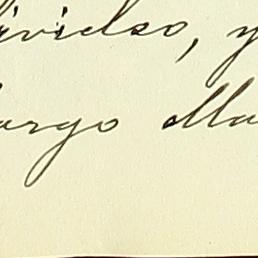 ividso, y
argo Ma